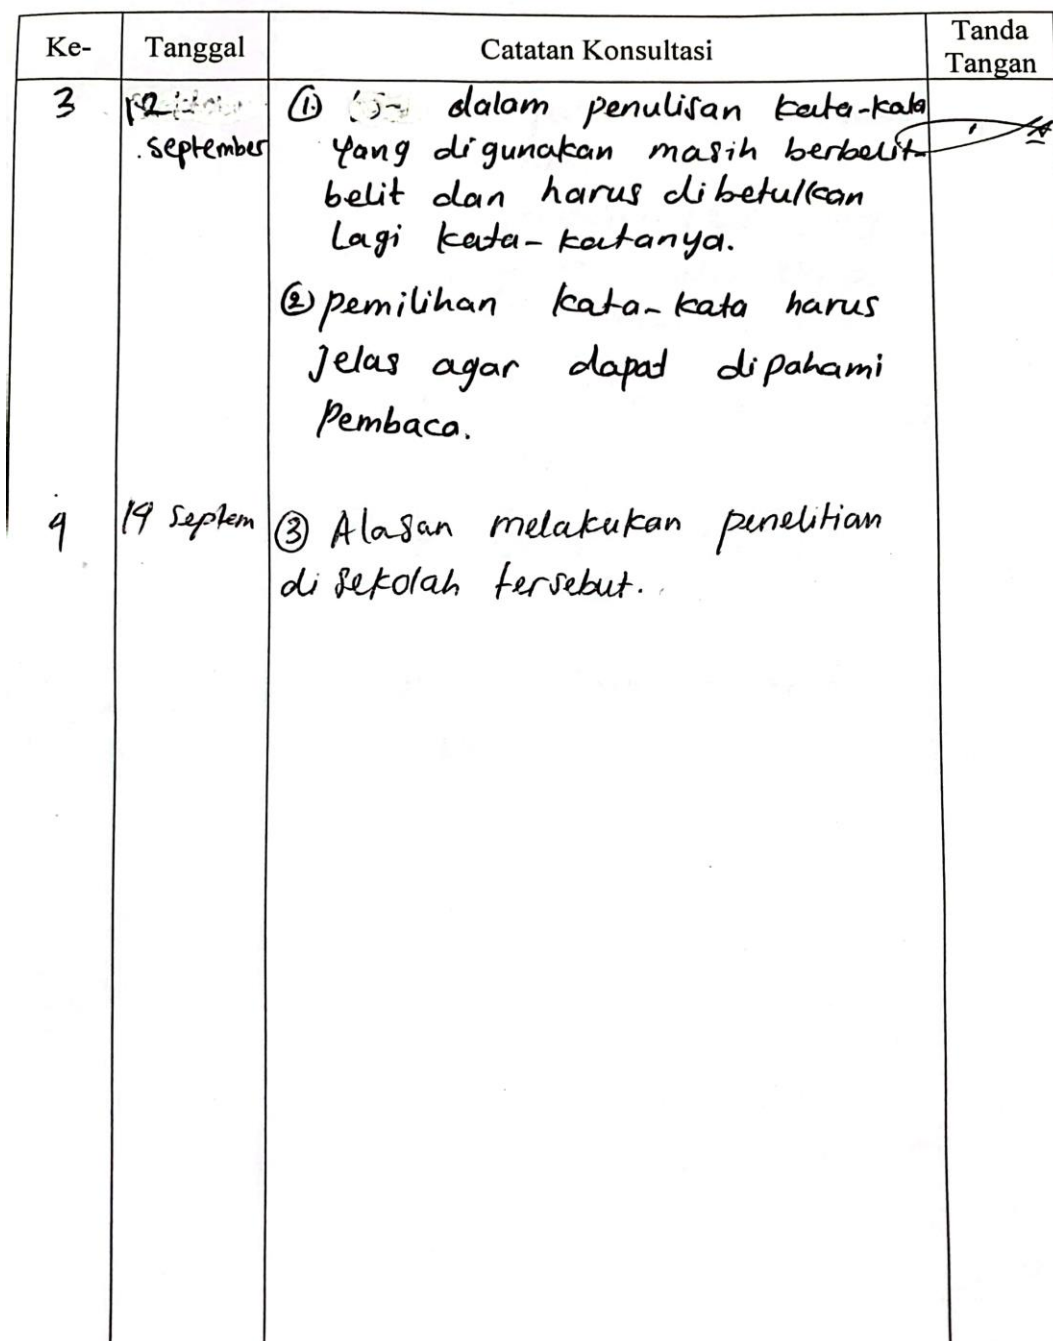 Ke- Tanggal Catatan Konsultasi Tanda Tangan
3 12 september ① dalam penulisan kata-kata
yang digunakan masih berbelit-
belit dan harus dibetulkan
lagi kata-katanya.
② pemilihan kata-kata harus
jelas agar dapat dipahami
Pembaca.
4 19 Septem ③ Alasan melakukan penelitian
di sekolah tersebut.